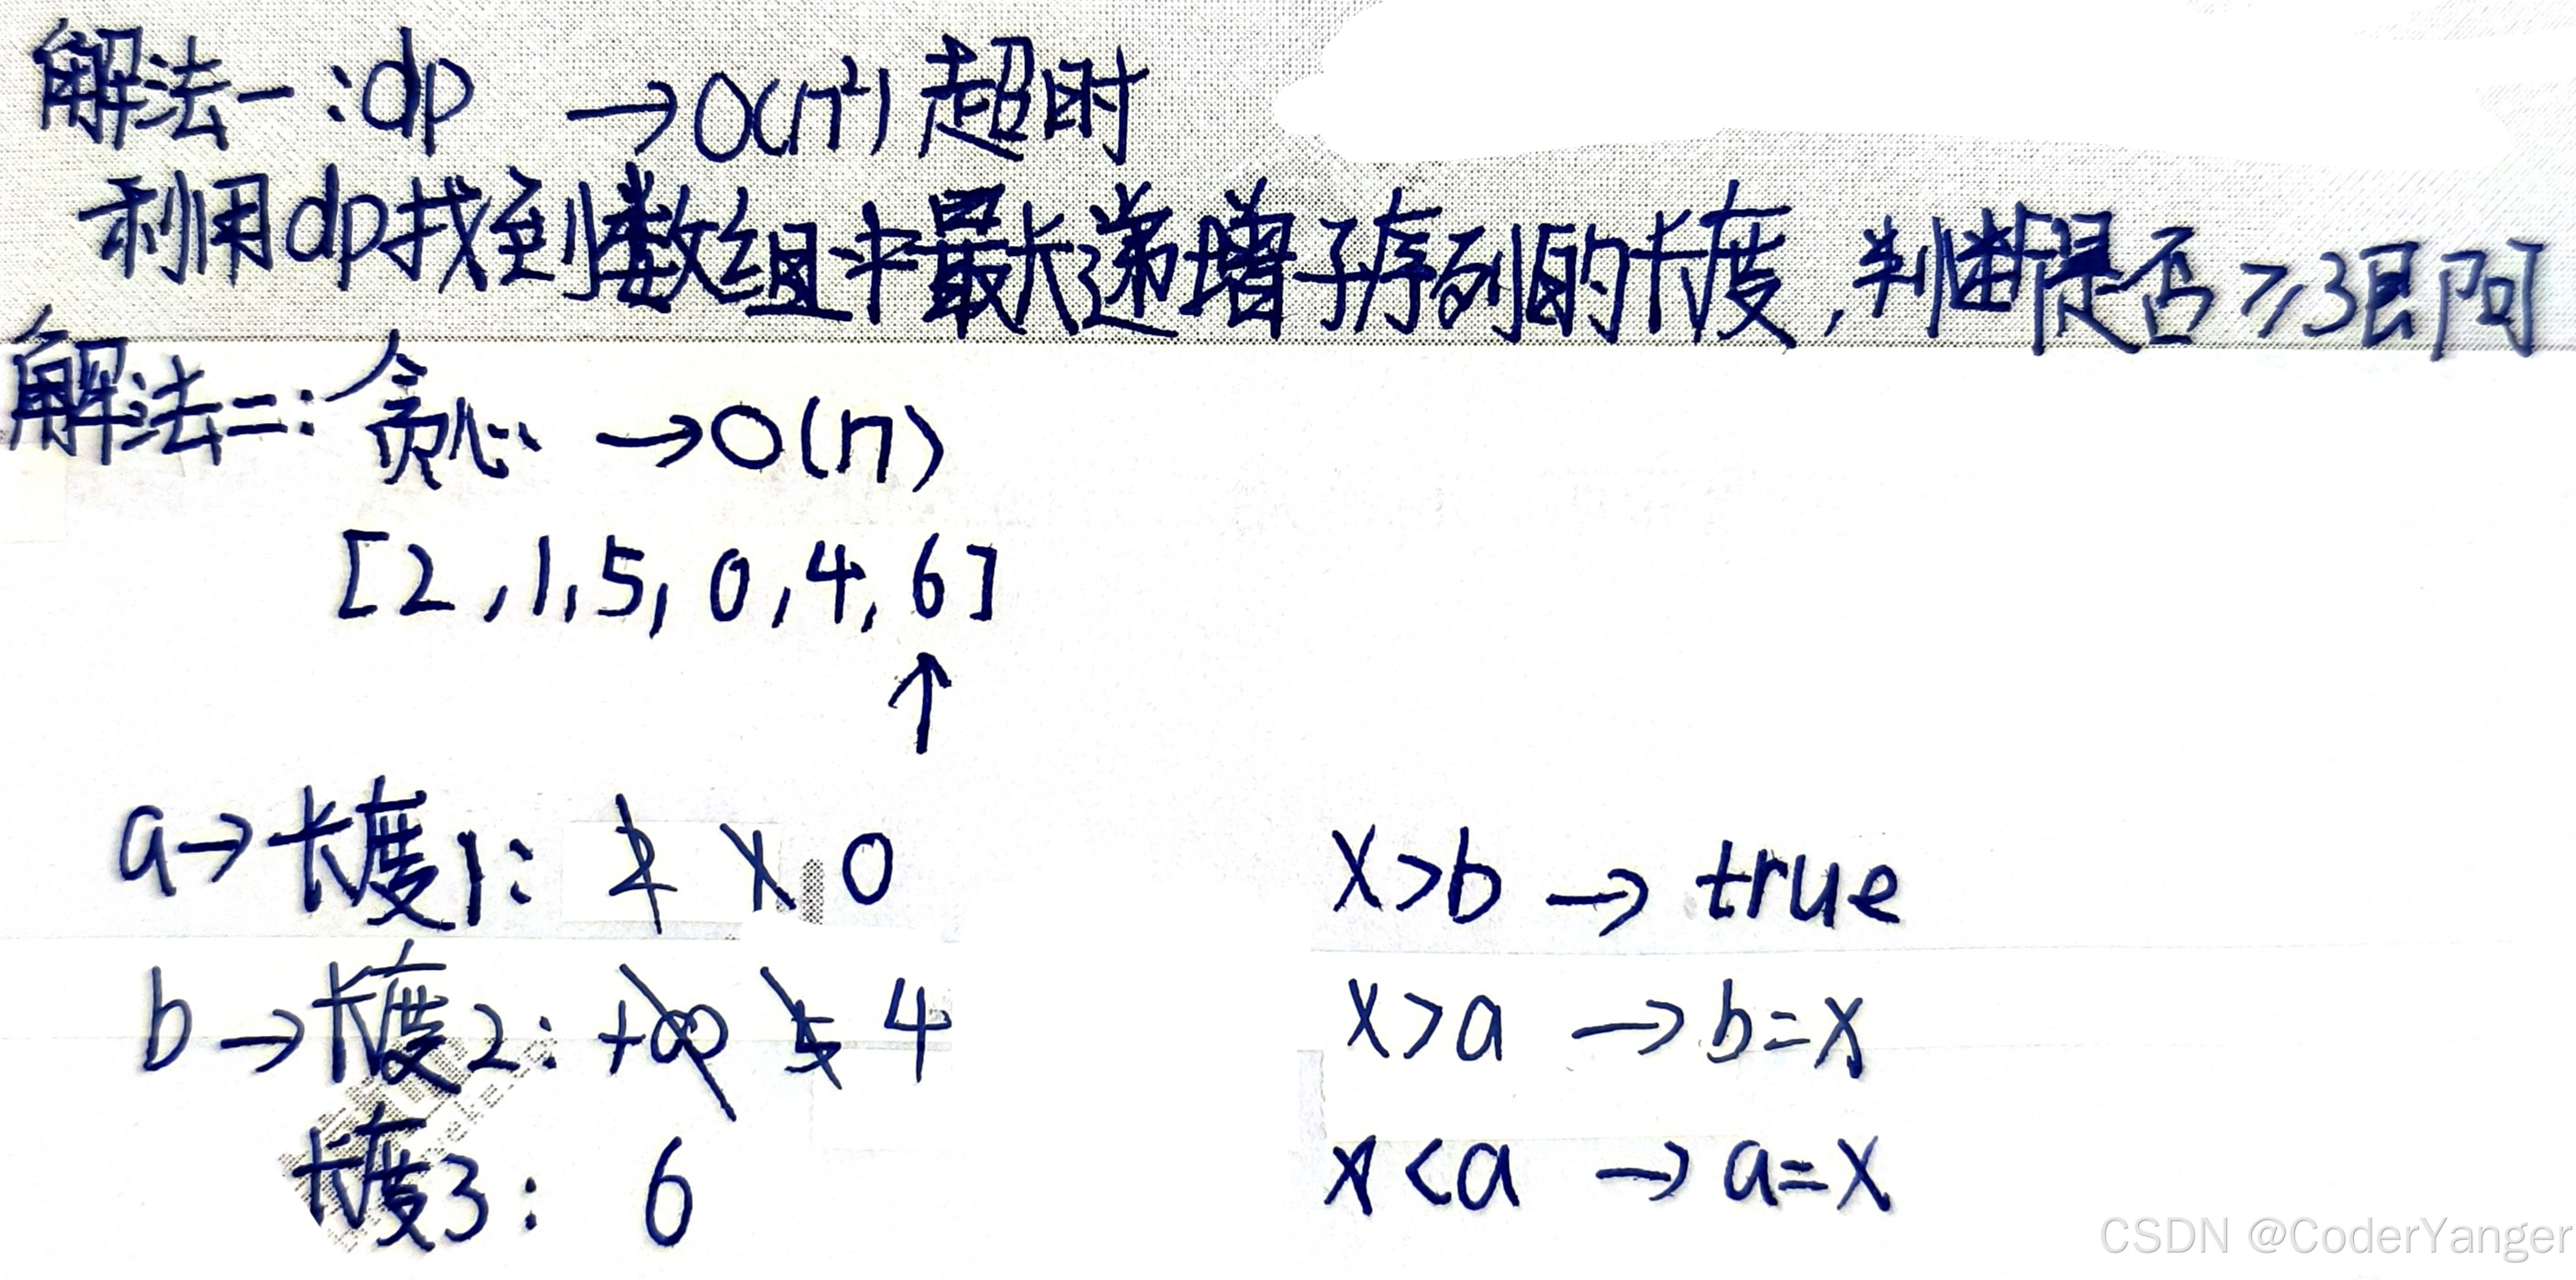 解法一:dp →O(n²)超时
利用dp找到数组中最长递增子序列的长度,判断是否≥3即可
解法二:贪心 →O(n)
[2,1,5,0,4,6]
↑
a→长度1: 2 1 0
b→长度2: +∞ 5 4
长度3: 6
x>b → true
x>a → b=x
x<a → a=x
CSDN @CoderYanger